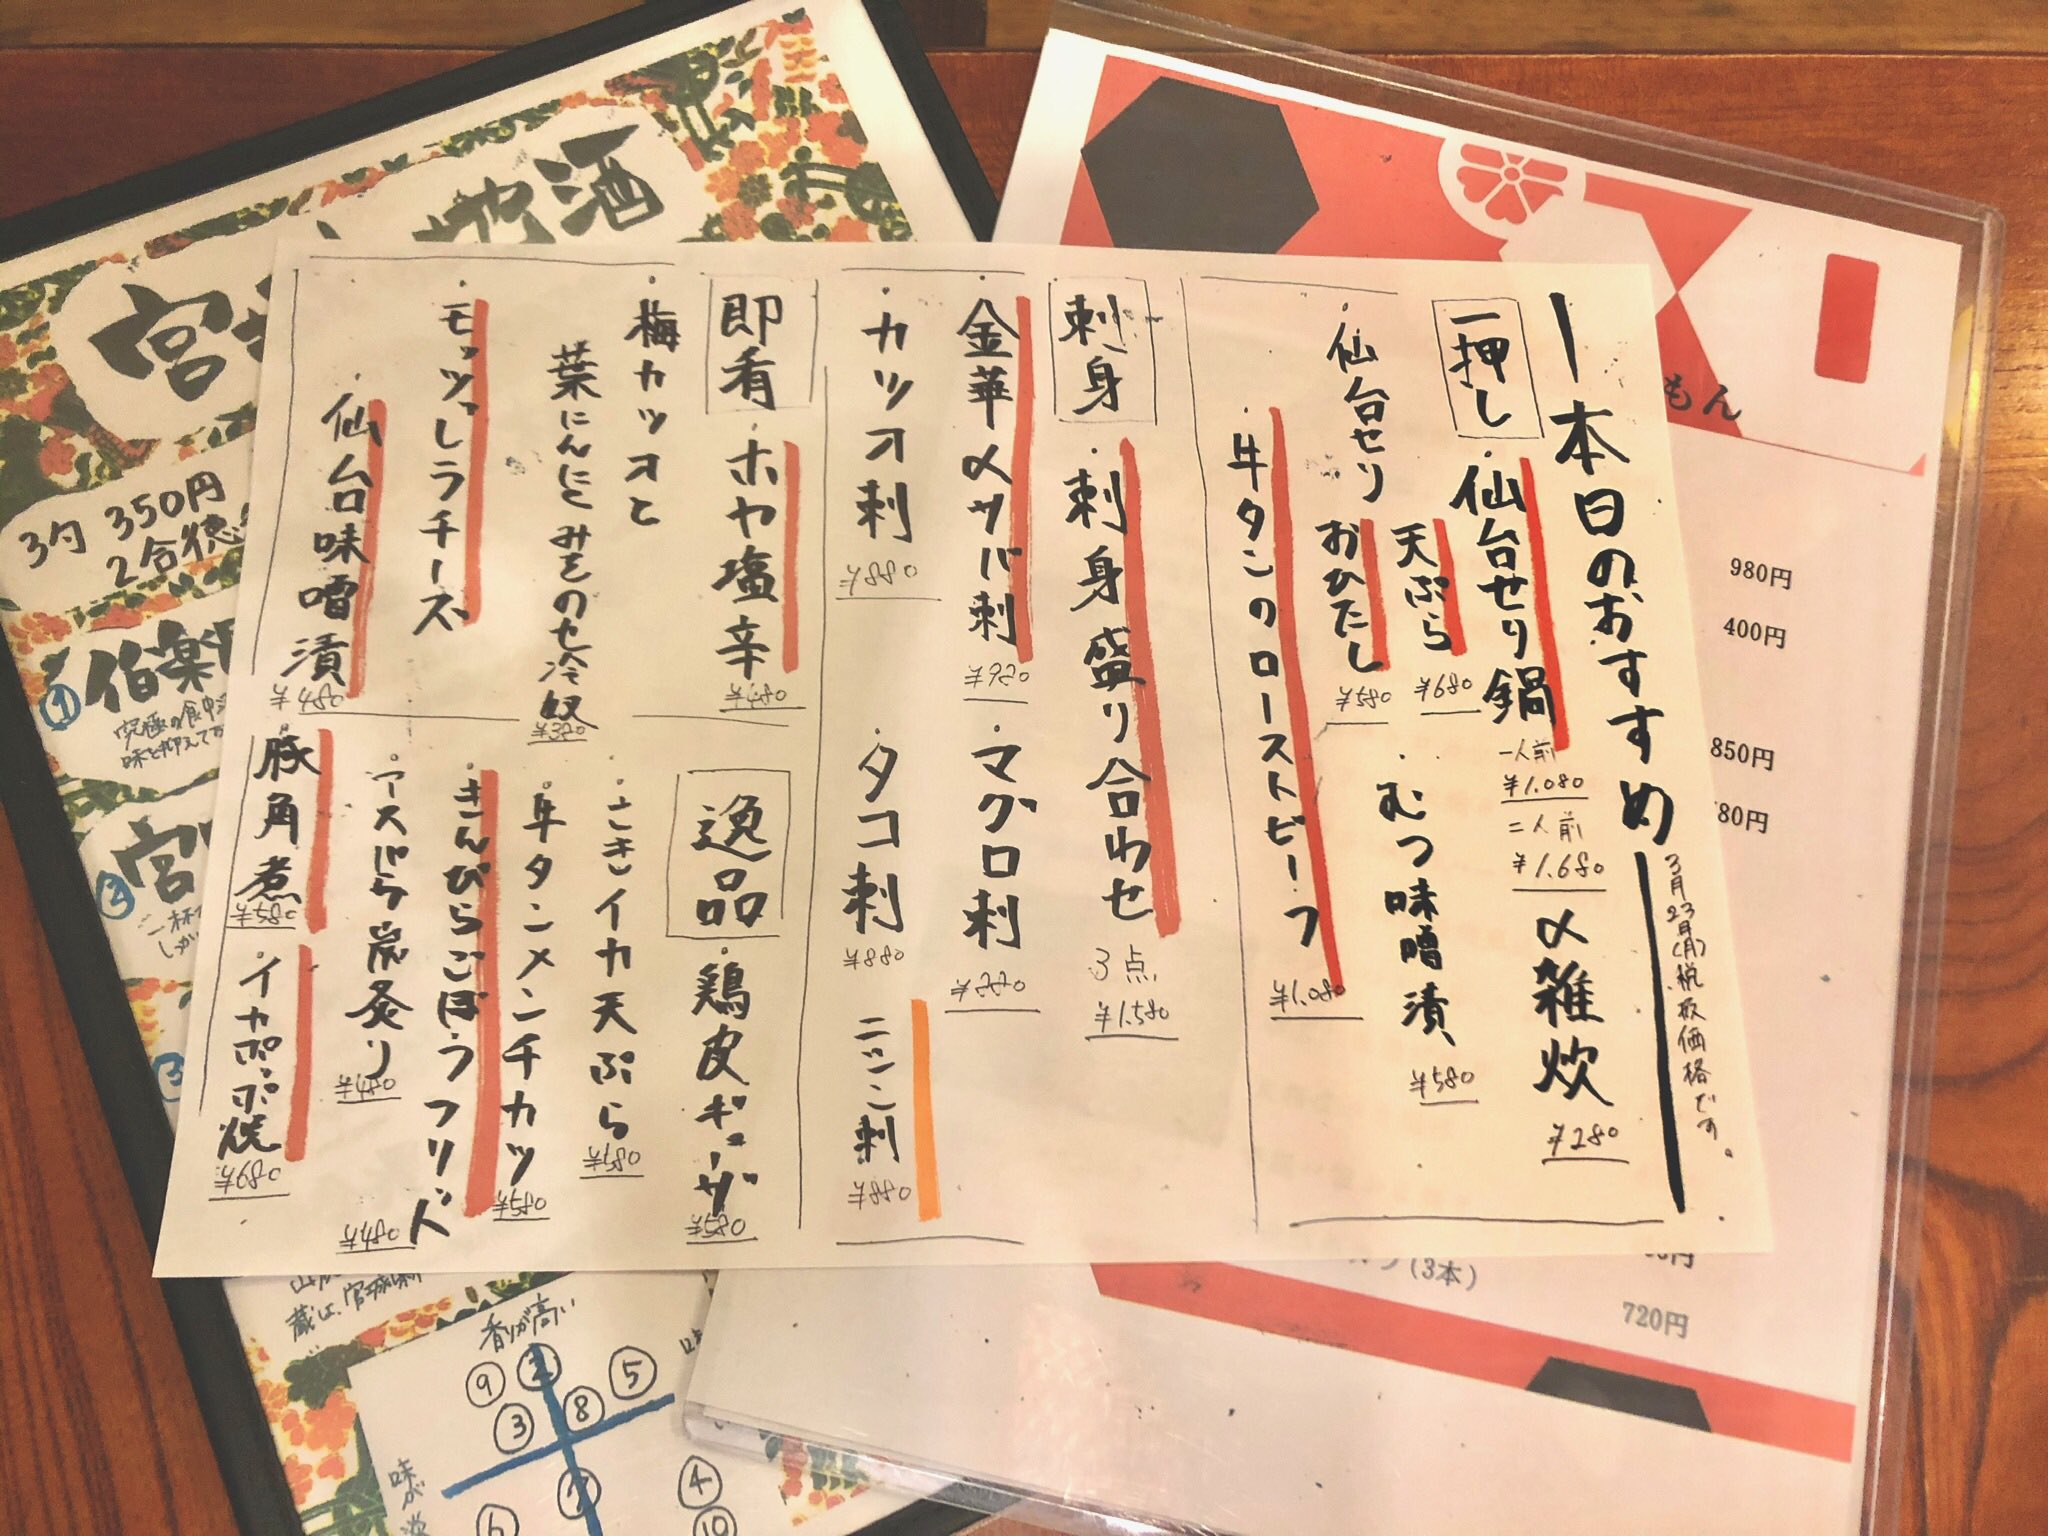 本日のおすすめ
3月23日(月)税抜価格です。
一押し
・仙台せり鍋
一人前
¥1.080
二人前
¥1.680
〆雑炊
¥280
・仙台せり
天ぷら
¥680
おひたし
¥580
・むつ味噌漬
¥580
・牛タンのローストビーフ
¥1.080
刺身
・刺身盛り合わせ
3点
¥1.580
・金華〆サバ刺
¥920
・マグロ刺
・カツオ刺
¥880
・タコ刺
¥880
刺
¥880
即肴
・ホヤ塩辛
¥480
・梅カツオと
葉にんにくみその
冷奴
・モッツァレラチーズ
仙台味噌漬
¥480
逸品
・鶏皮ギョーザ
¥580
・さきイカ天ぷら
¥580
・牛タンメンチカツ
¥580
・きんぴらごぼうフリット
¥480
・アスパラ炭炙り
¥480
・豚角煮
¥580
・イカポッポ焼
¥680
酒
宮
3勺 350円
2合
①
伯楽
究極の食中
②
宮
③
香りが高い
⑨ ② ⑤
③ ⑧
⑦ ④
⑥ ⑩
味が
もん
980円
400円
850円
80円
(3本)
720円